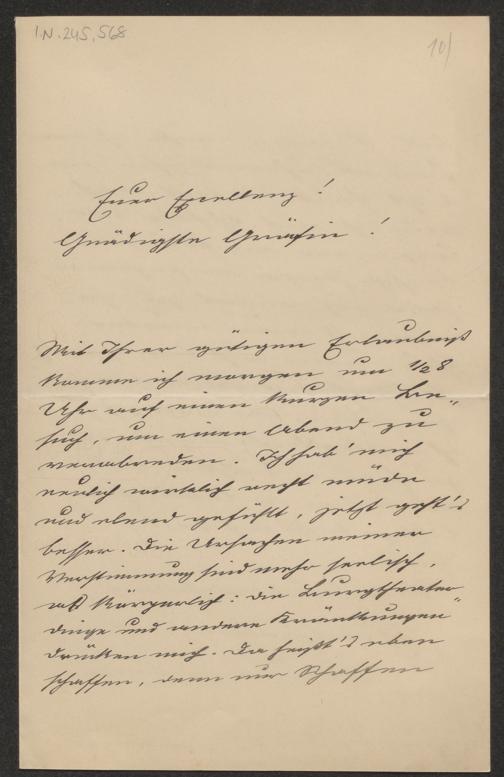 I.N. 245.568
10)
Euer Excellenz!
Gnädigste Gräfin!
Mit Ihrer gütigen Erlaubniß
komme ich morgen um 1/2 8
Uhr auf einen kurzen Be-
such, um einen Abend zu
verabreden. Ich hab' mich
neulich wirklich recht müde
und elend gefühlt, jetzt geht's
besser. Die Ursachen meiner
Verstimmung sind mehr seelisch,
als körperlich: die Burgtheater-
dinge und andere Kränkungen
drücken mich. Da heißt's eben
schaffen, denn nur Schaffen